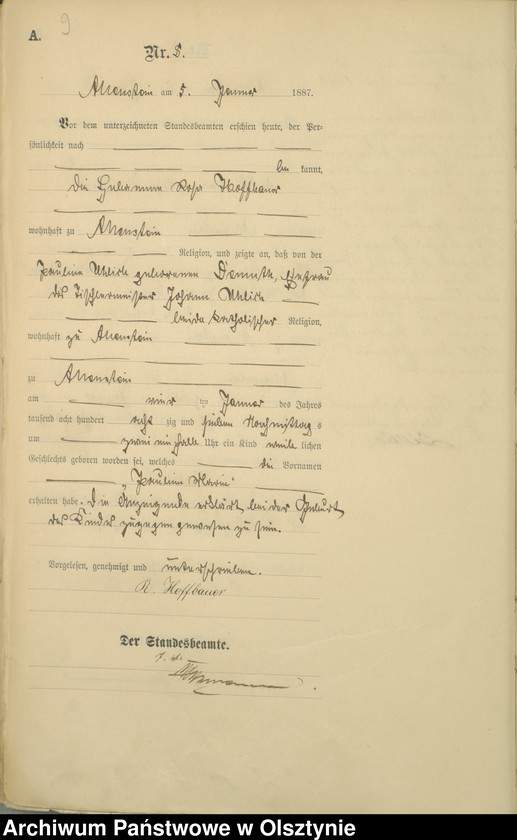 9
A.
Nr. 5.
Allenstein am 5. Januar 1887.
Vor dem unterzeichneten Standesbeamten erschien heute, der Per-
sönlichkeit nach
be kannt,
die Hebamme Rosa Hoffbauer
wohnhaft zu Allenstein
Religion, und zeigte an, daß von der
Pauline Uhlich geborenen Demuth, Ehefrau
des Tischlermeister Johann Uhlich
beide katholischer Religion,
wohnhaft zu Allenstein
zu Allenstein
am vier ten Januar des Jahres
tausend acht hundert acht zig und sieben Nachmittag s
um zwei einhalb Uhr ein Kind weib lichen
Geschlechts geboren worden sei, welches die Vornamen
„Pauline Maria“
erhalten habe. Die Anzeigende erklärt, bei der Geburt
des Kindes zugegen gewesen zu sein.
Vorgelesen, genehmigt und unterschrieben.
R. Hoffbauer
Der Standesbeamte.
Archiwum Państwowe w Olsztynie